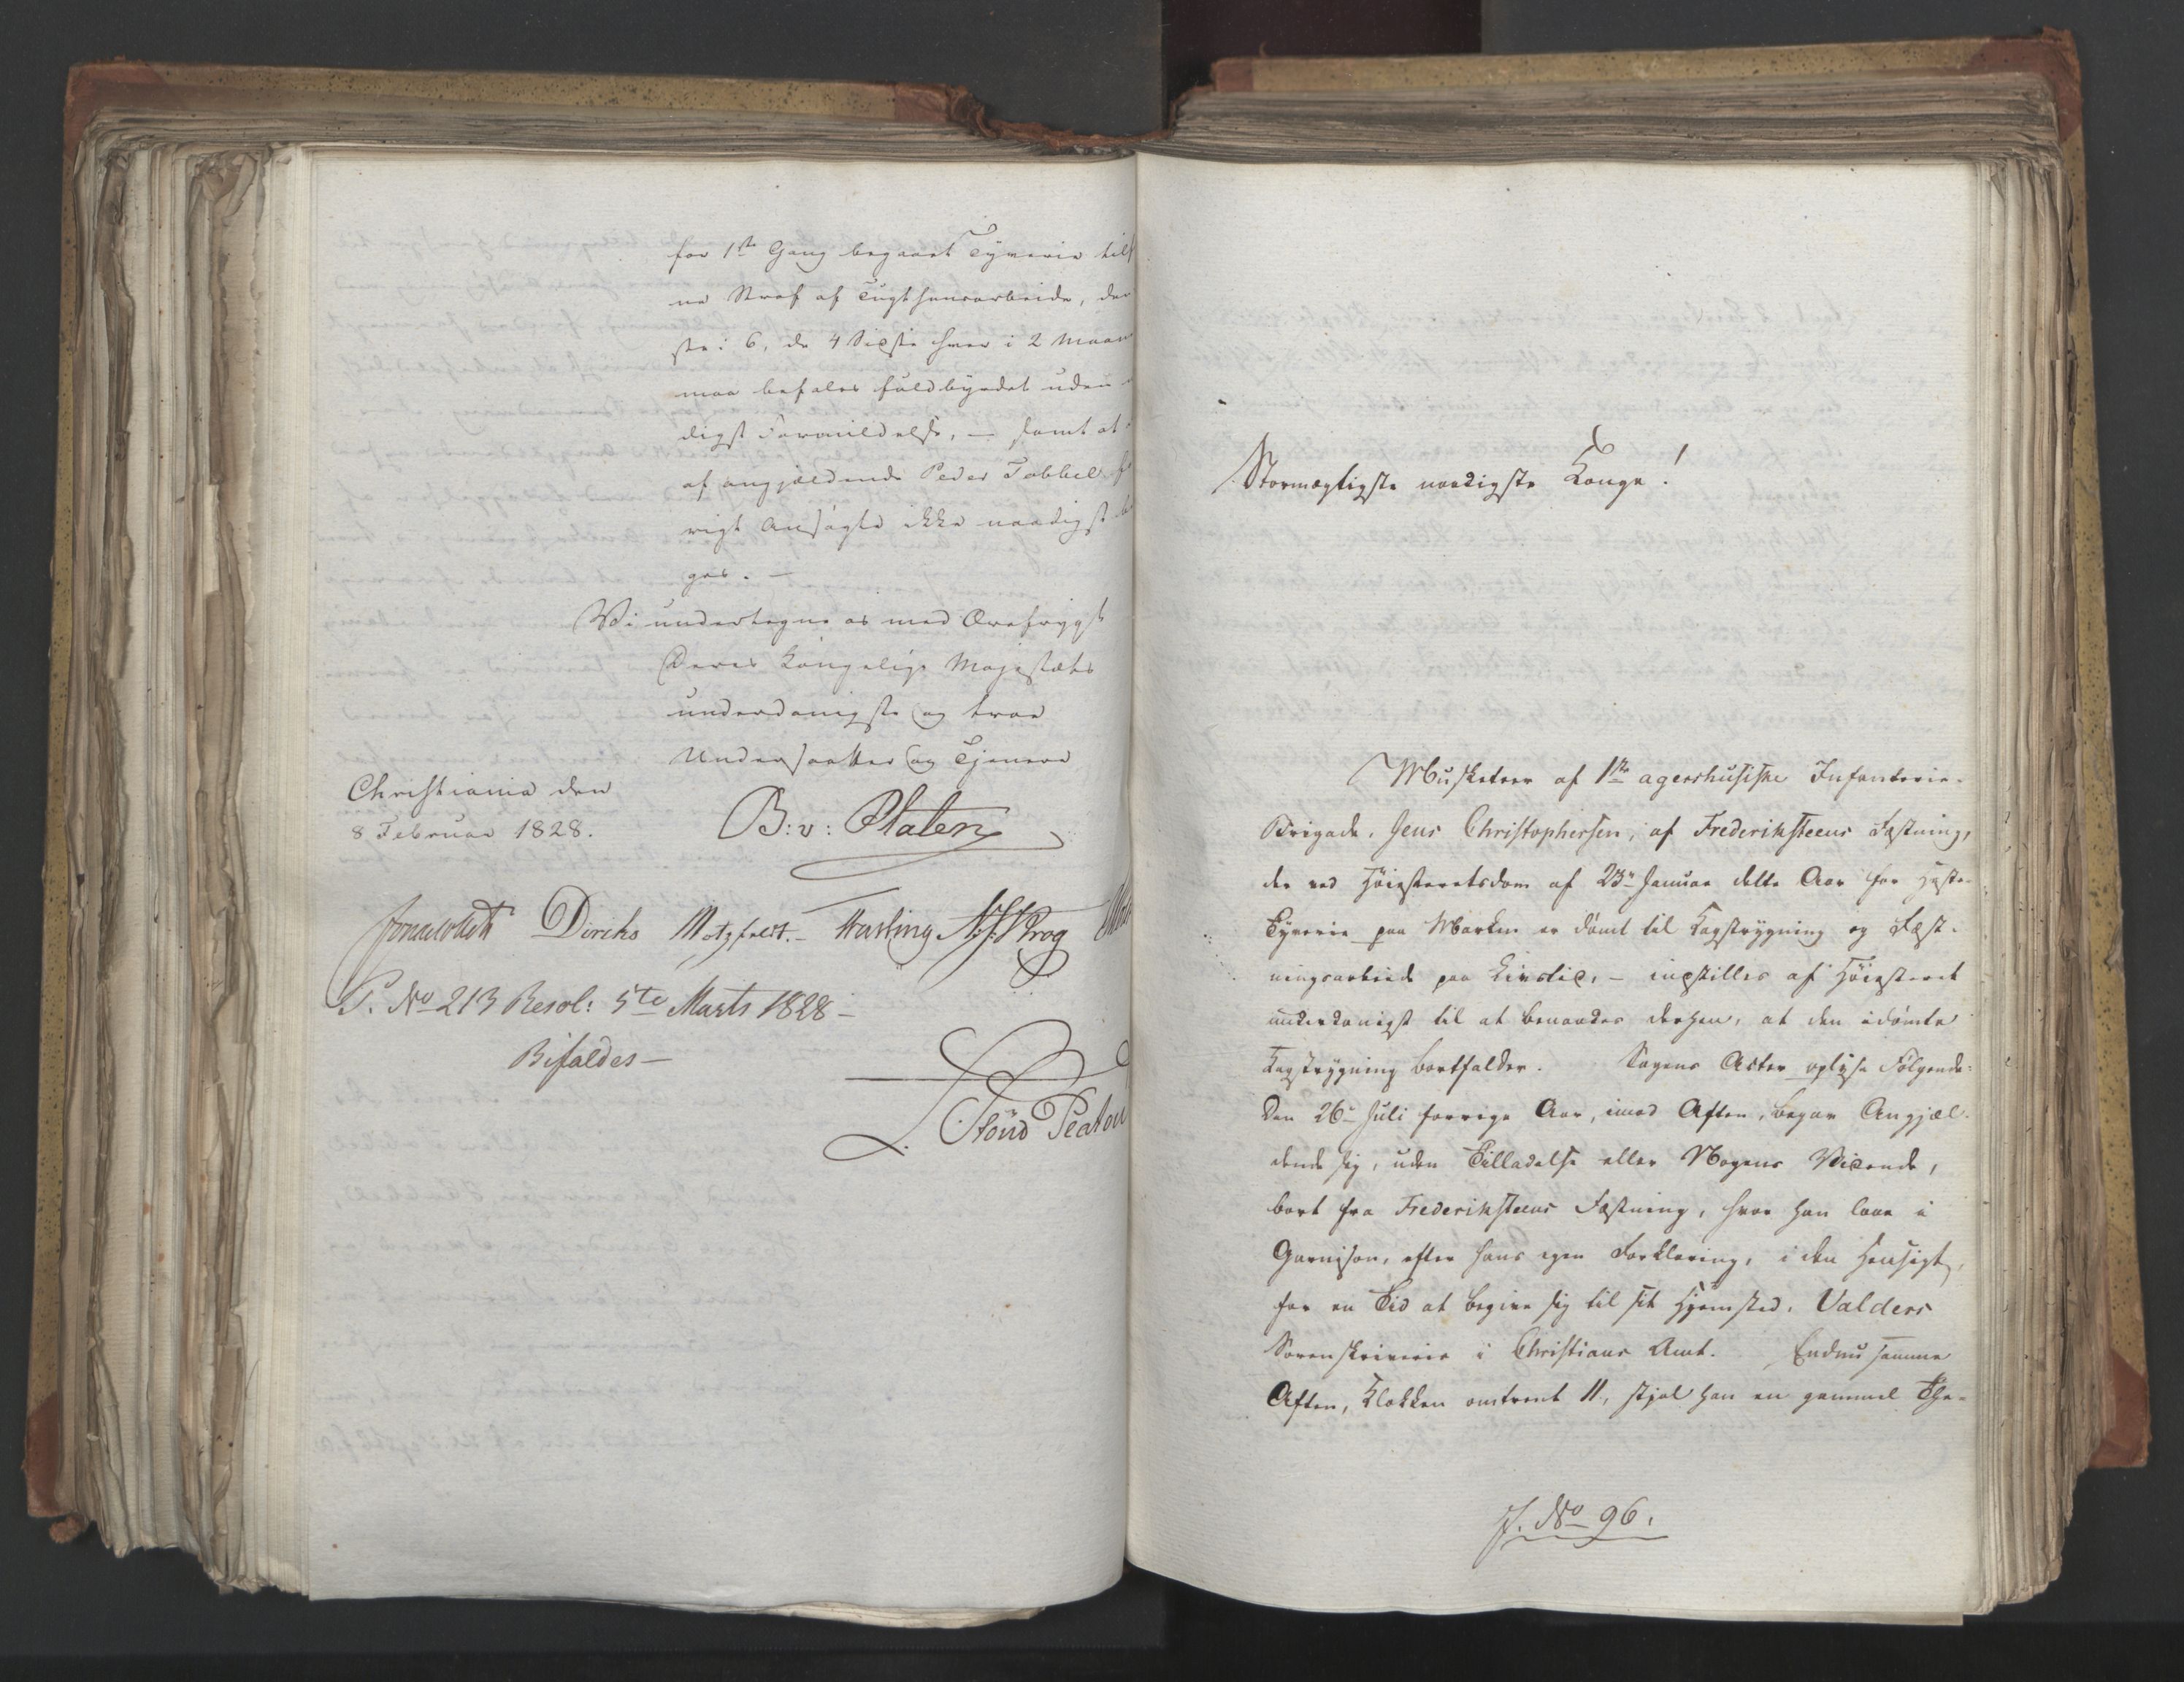 for 1ste Gang begaaet Tyverie till
ne Straf af Tugthuusarbeide, den
ste i 6, de 4 Sidste hver i 2 Maan
maa befales fuldbyrdet uden
digst Formildelse, — samt at
af angjældende Peder Tobbel
rigt Ansøgte ikke naadigst
ges. —
Vi undertegne os med Ærefrygt
Deres Kongelige Majestæts
underdanigste og troe
Undersaatter og Tjenere
Christiania den
8 Februar 1828.
B: v: Platen
Sommerfeldt Diriks Motzfeldt. Fasting N. J. Krog
P. No 213 Resol: 5te Marts 1828 —
Bifaldes —
Stormægtigste naadigste Konge!
Musketeer af 1ste agershusiske Infanterie-
Brigade, Jens Christophersen, af Frederiksteens Fæstning,
der ved Høiesteretsdom af 23de Januar dette Aar for Heste-
Tyverie paa Marken er dømt til Kagstrygning og Fæst-
ningsarbeide paa Livstid, — indstilles af Høiesteret
underdanigst til at benaades derhen, at den idømte
Kagstrygning bortfalder. Sagens Acter oplyse Følgende:
Den 26de Juli forrige Aar, imod Aften, begav Angjæl-
dende sig, uden Tilladelse eller Nogens Vidende,
bort fra Frederiksteens Fæstning, hvor han laae i
Garnison, efter hans egen Forklaring, i den Hensigt,
for en Tid at begive sig til sit Hjemsted, Valders
Sorenskriverie i Christians Amt. Endnu samme
Aften, Klokken omtrent 11, stjal han en gammel Hop-
J. No 96.